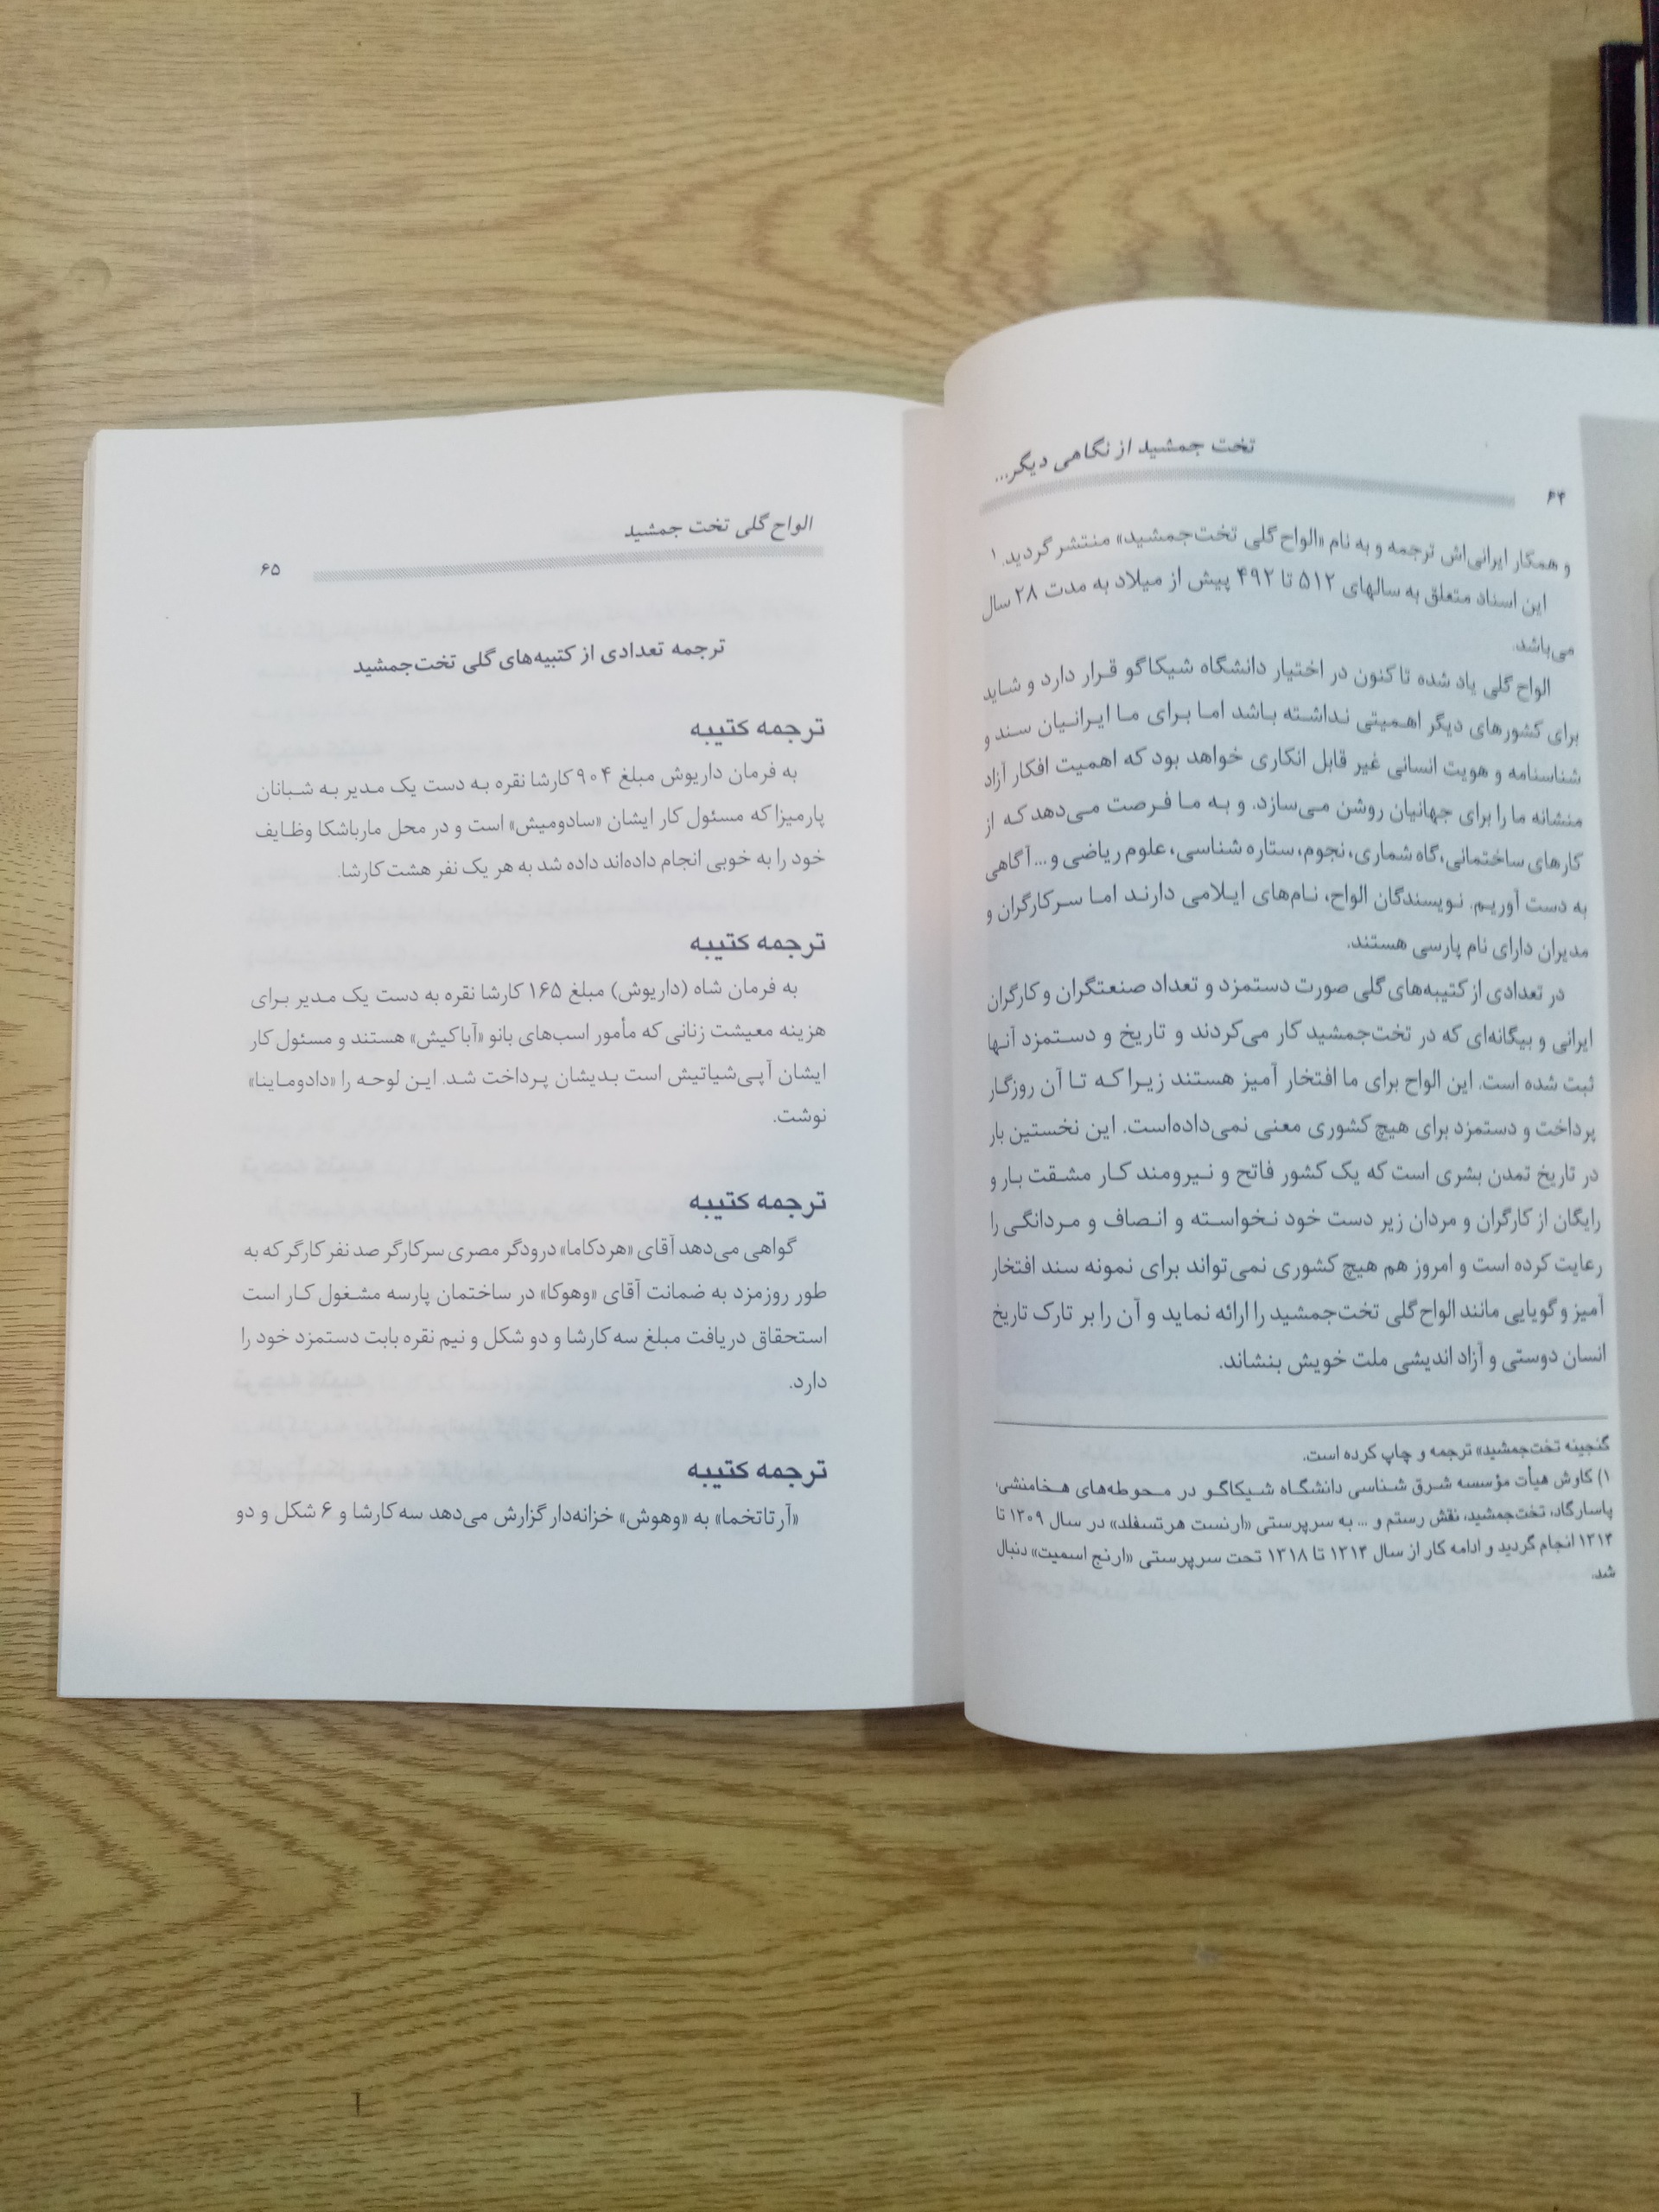 ۶۴
تخت جمشید از نگاهی دیگر...
و همکار ایرانی‌اش ترجمه و به نام «الواح گلی تخت‌جمشید» منتشر گردید. ۱
این اسناد متعلق به سالهای ۵۱۲ تا ۴۹۲ پیش از میلاد به مدت ۲۸ سال
می‌باشد.
الواح گلی یاد شده تاکنون در اختیار دانشگاه شیکاگو قرار دارد و شاید
برای کشورهای دیگر اهمیتی نداشته باشد اما برای ما ایرانیان سند و
شناسنامه و هویت انسانی غیر قابل انکاری خواهد بود که اهمیت افکار آزاد
منشانه ما را برای جهانیان روشن می‌سازد. و به ما فرصت می‌دهد که از
کارهای ساختمانی، گاه شماری، نجوم، ستاره شناسی، علوم ریاضی و... آگاهی
به دست آوریم. نویسندگان الواح، نام‌های ایلامی دارند اما سرکارگران و
مدیران دارای نام پارسی هستند.
در تعدادی از کتیبه‌های گلی صورت دستمزد و تعداد صنعتگران و کارگران
ایرانی و بیگانه‌ای که در تخت‌جمشید کار می‌کردند و تاریخ و دستمزد آنها
ثبت شده است. این الواح برای ما افتخار آمیز هستند زیرا که تا آن روزگار
پرداخت و دستمزد برای هیچ کشوری معنی نمی‌داده‌است. این نخستین بار
در تاریخ تمدن بشری است که یک کشور فاتح و نیرومند کار مشقت بار و
رایگان از کارگران و مردان زیر دست خود نخواسته و انصاف و مردانگی را
رعایت کرده است و امروز هم هیچ کشوری نمی‌تواند برای نمونه سند افتخار
آمیز و گویایی مانند الواح گلی تخت‌جمشید را ارائه نماید و آن را بر تارک تاریخ
انسان دوستی و آزاد اندیشی ملت خویش بنشاند.
گنجینه تخت‌جمشید» ترجمه و چاپ کرده است.
۱) کاوش هیأت مؤسسه شرق شناسی دانشگاه شیکاگو در محوطه‌های هخامنشی،
پاسارگاد، تخت‌جمشید، نقش رستم و ... به سرپرستی «ارنست هرتسفلد» در سال ۱۳۰۹ تا
۱۳۱۳ انجام گردید و ادامه کار از سال ۱۳۱۳ تا ۱۳۱۸ تحت سرپرستی «ارنج اسمیت» دنبال
شد.
الواح گلی تخت جمشید
۶۵
ترجمه تعدادی از کتیبه‌های گلی تخت‌جمشید
ترجمه کتیبه
به فرمان داریوش مبلغ ۹۰۴ کارشا نقره به دست یک مدیر به شبانان
پارمیزا که مسئول کار ایشان «سادومیش» است و در محل مارباشکا وظایف
خود را به خوبی انجام داده‌اند داده شد به هر یک نفر هشت کارشا.
ترجمه کتیبه
به فرمان شاه (داریوش) مبلغ ۱۶۵ کارشا نقره به دست یک مدیر برای
هزینه معیشت زنانی که مأمور اسب‌های بانو «آباکیش» هستند و مسئول کار
ایشان آپی‌شیاتیش است بدیشان پرداخت شد. این لوحه را «دادوماینا»
نوشت.
ترجمه کتیبه
گواهی می‌دهد آقای «هردکاما» درودگر مصری سرکارگر صد نفر کارگر که به
طور روزمزد به ضمانت آقای «وهوکا» در ساختمان پارسه مشغول کار است
استحقاق دریافت مبلغ سه کارشا و دو شکل و نیم نقره بابت دستمزد خود را
دارد.
ترجمه کتیبه
«آرتاتخما» به «وهوش» خزانه‌دار گزارش می‌دهد سه کارشا و ۶ شکل و دو